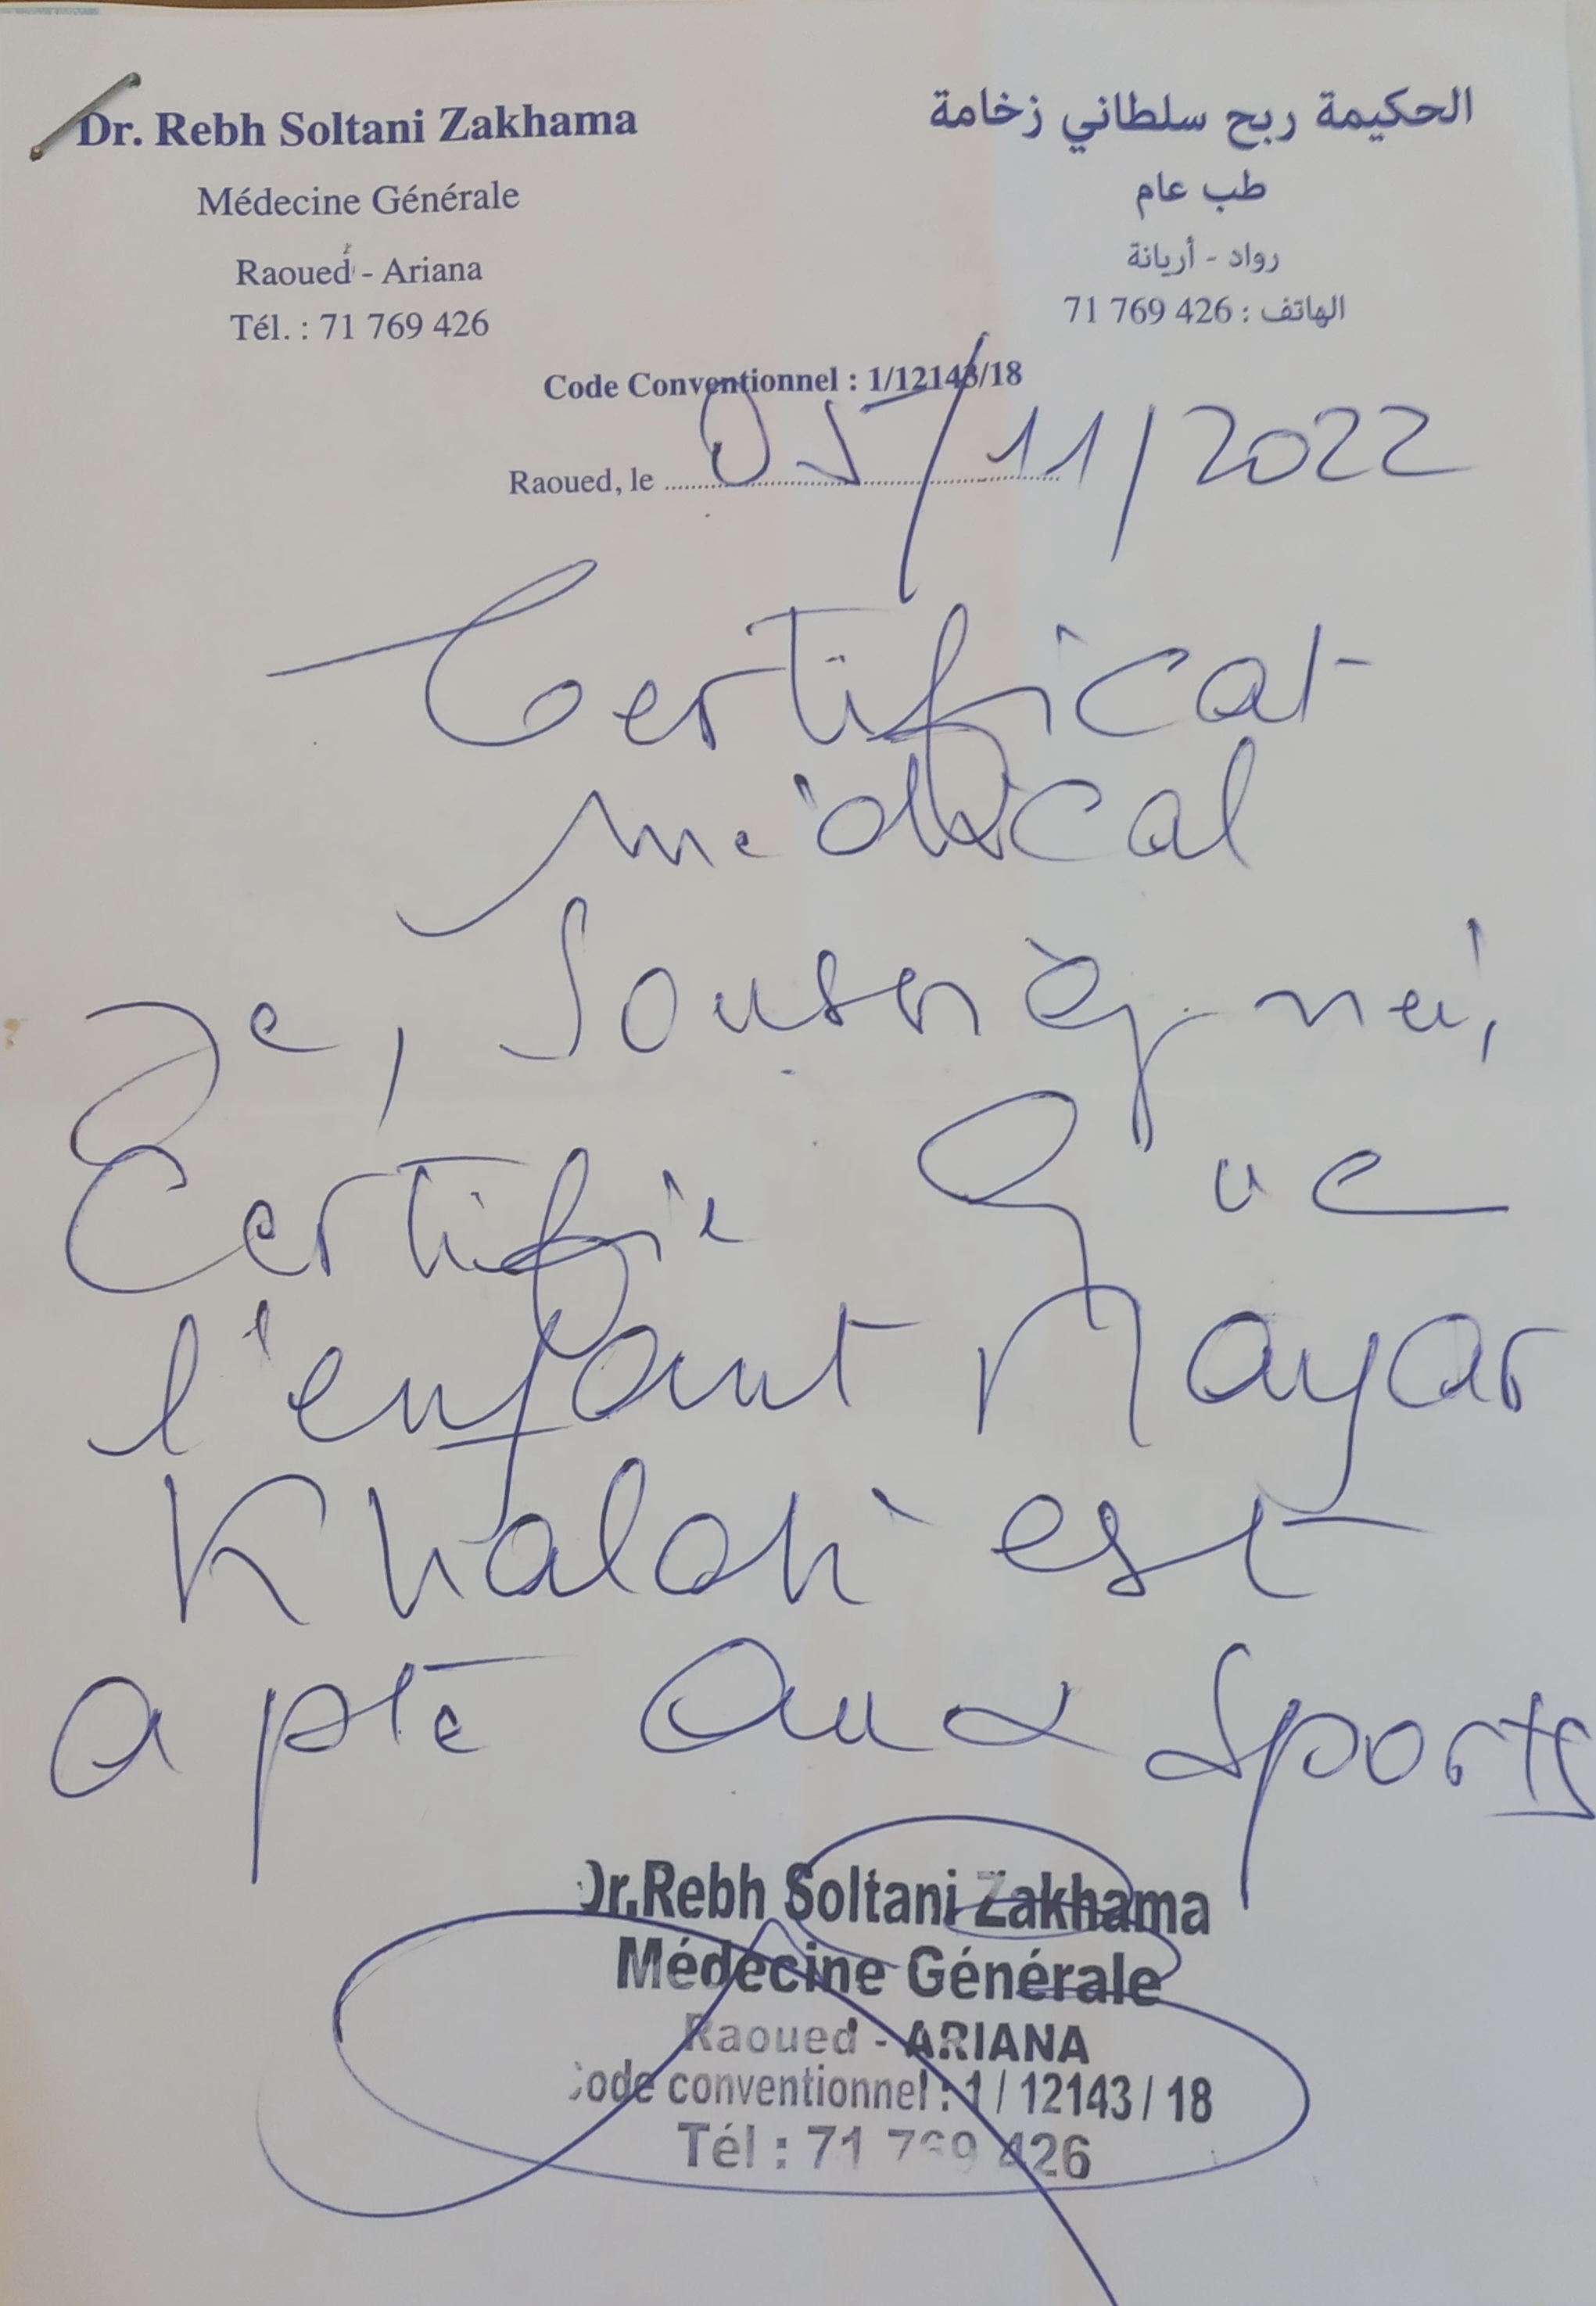 Dr. Rebh Soltani Zakhama
Médecine Générale
Raoued - Ariana
Tél. : 71 769 426
الحكيمة ربح سلطاني زخامة
طب عام
رواد - أريانة
الهاتف : 426 769 71
Code Conventionnel : 1/12143/18
Raoued, le 05/11/2022
Certificat
médical
Je, soussigné,
Certifie que
l'enfant Mayar
est
apte aux sports
Dr.Rebh Soltani Zakhama
Médecine Générale
Raoued - ARIANA
Code conventionnel : 1 / 12143 / 18
Tél : 71 769 426